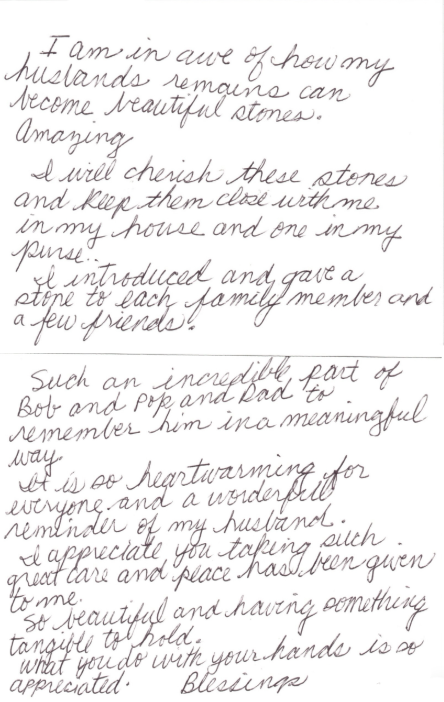 I am in awe of how my
husbands remains can
become beautiful stones.
Amazing
I will cherish these stones
and keep them close with me
in my house and one in my
purse..
I introduced and gave a
stone to each family member and
a few friends.
Such an incredible part of
Bob and Pop and Dad to
remember him in a meaningful
way.
It is so heartwarming for
everyone and a wonderful
reminder of my husband.
I appreciate you taking such
great care and peace has been given
to me.
So beautiful and having something
tangible to hold.
What you do with your hands is so
appreciated. Blessings